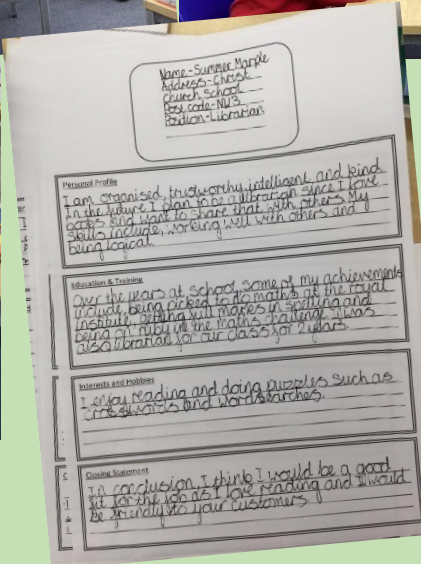 Name-Summer Marple
Address-Christ
Church School
Post code-NW3
Position-Librarian
Personal Profile
I am organised, trustworthy, intelligent and kind
In the future I plan to be a librarian since I love
books and want to share that with others My
skills include, working well with others and
being logical.
Education & Training
Over the years at school some of my achievements
include, being picked to do maths at the royal
institute, getting full marks in spelling and
being on ruby in the maths challenge. I was
also librarian for our class for 2 years.
Interests and Hobbies
I enjoy reading and doing puzzles such as
crosswords and wordsearches.
Closing Statement
In conclusion, I think I would be a good
fit for the job as I love reading and I would
be friendly to your customers